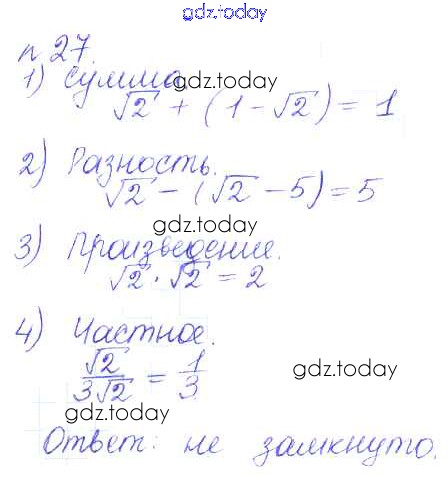 gdz.today
п 27.
1) Сумма.
gdz.today
√2 + (1 - √2) = 1
2) Разность.
√2 - (√2 - 5) = 5
gdz.today
3) Произведение.
√2 · √2 = 2
4) Частное.
√2/3√2 = 1/3
gdz.today
gdz.today
Ответ: не замкнуто.